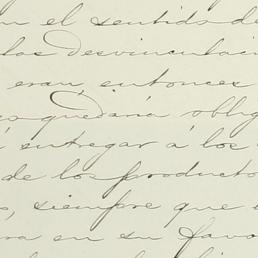 en el sentido de
las desvinculaci
eran, entonces
es quedaría oblig
á entregar á los
de los producto
s, siempre que
ra en su favo